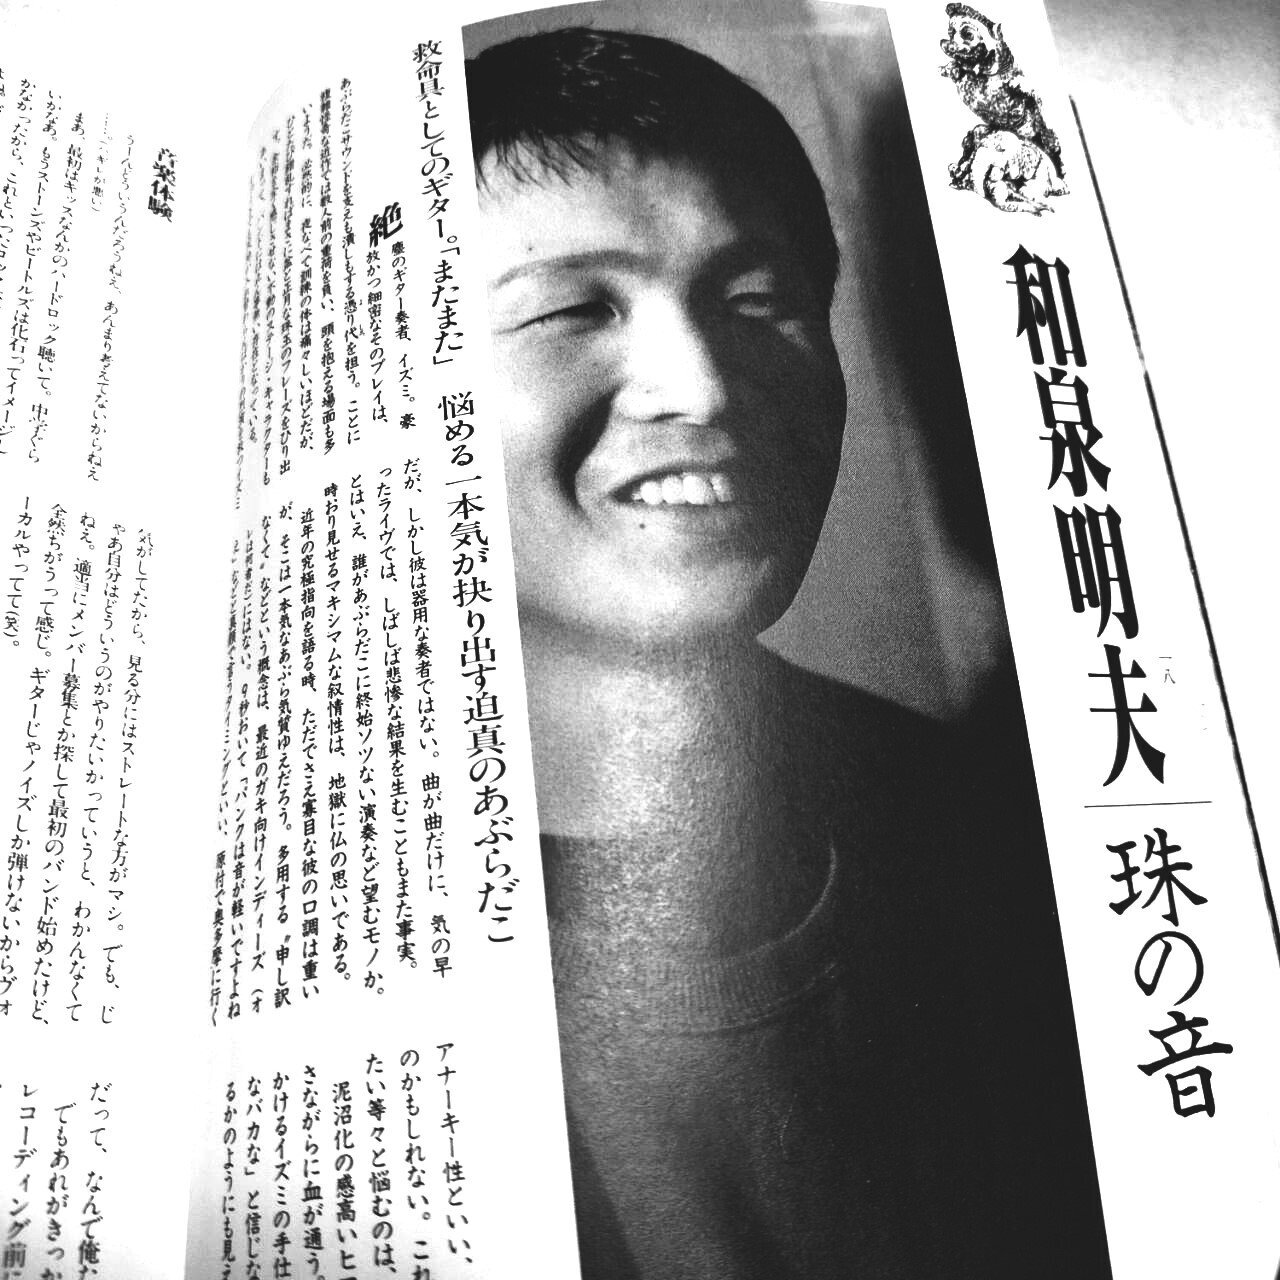 和泉明夫
一八
珠の音
救命具としてのギター。「またまた」 悩める一本気が抉り出す迫真のあぶらだこ
絶
塵のギター奏者、イズミ。豪
放かつ細密なそのプレイは、
あぶらだこサウンドを支えも潰しもする憑り代を担う。ことに
近作では数人前の重荷を負い、頭を抱える場面も多
だが、しかし彼は器用な奏者ではない。曲が曲だけに、気の早
ったライヴでは、しばしば悲惨な結果を生むこともまた事実。
とはいえ、誰があぶらだこに終始ソツない演奏など望むモノか。
時おり見せるマキシマムな叙情性は、地獄に仏の思いである。
近年の究極指向を語る時、ただでさえ寡目な彼の口調は重い
が、そこは一本気なあぶら気質ゆえだろう。多用する〝申し訳
なくて〟などという概念は、最近のガキ向けインディーズ（オ
にはない。9秒おいて「パンクは音が軽いですよね
などと真顔で言うタイミングといい、原付で奥多摩に行く
アナーキー性といい、
のかもしれない。これ
たい等々と悩むのは、
泥沼化の感高いヒー
さながらに血が通う。
かけるイズミの手仕
なバカな」と信じな
るかのようにも見え
音楽体験
うーんどういうんだろうねえ、あんまり考えてないからねえ
まあ、最初はキッスなんかのハードロック聴いて。中学ぐら
いかなあ。もうストーンズやビートルズは化石ってイメージし
かなかったから、これといった
気がしてたから、見る分にはストレートな方がマシ。でも、じ
ゃあ自分はどういうのがやりたいかっていうと、わかんなくて
ねえ。適当にメンバー募集とか探して最初のバンド始めたけど、
全然ちがうって感じ。ギターじゃノイズしか弾けないからヴォ
ーカルやってて(笑)。
だって、なんで俺な
でもあれがきっか
レコーディング前に